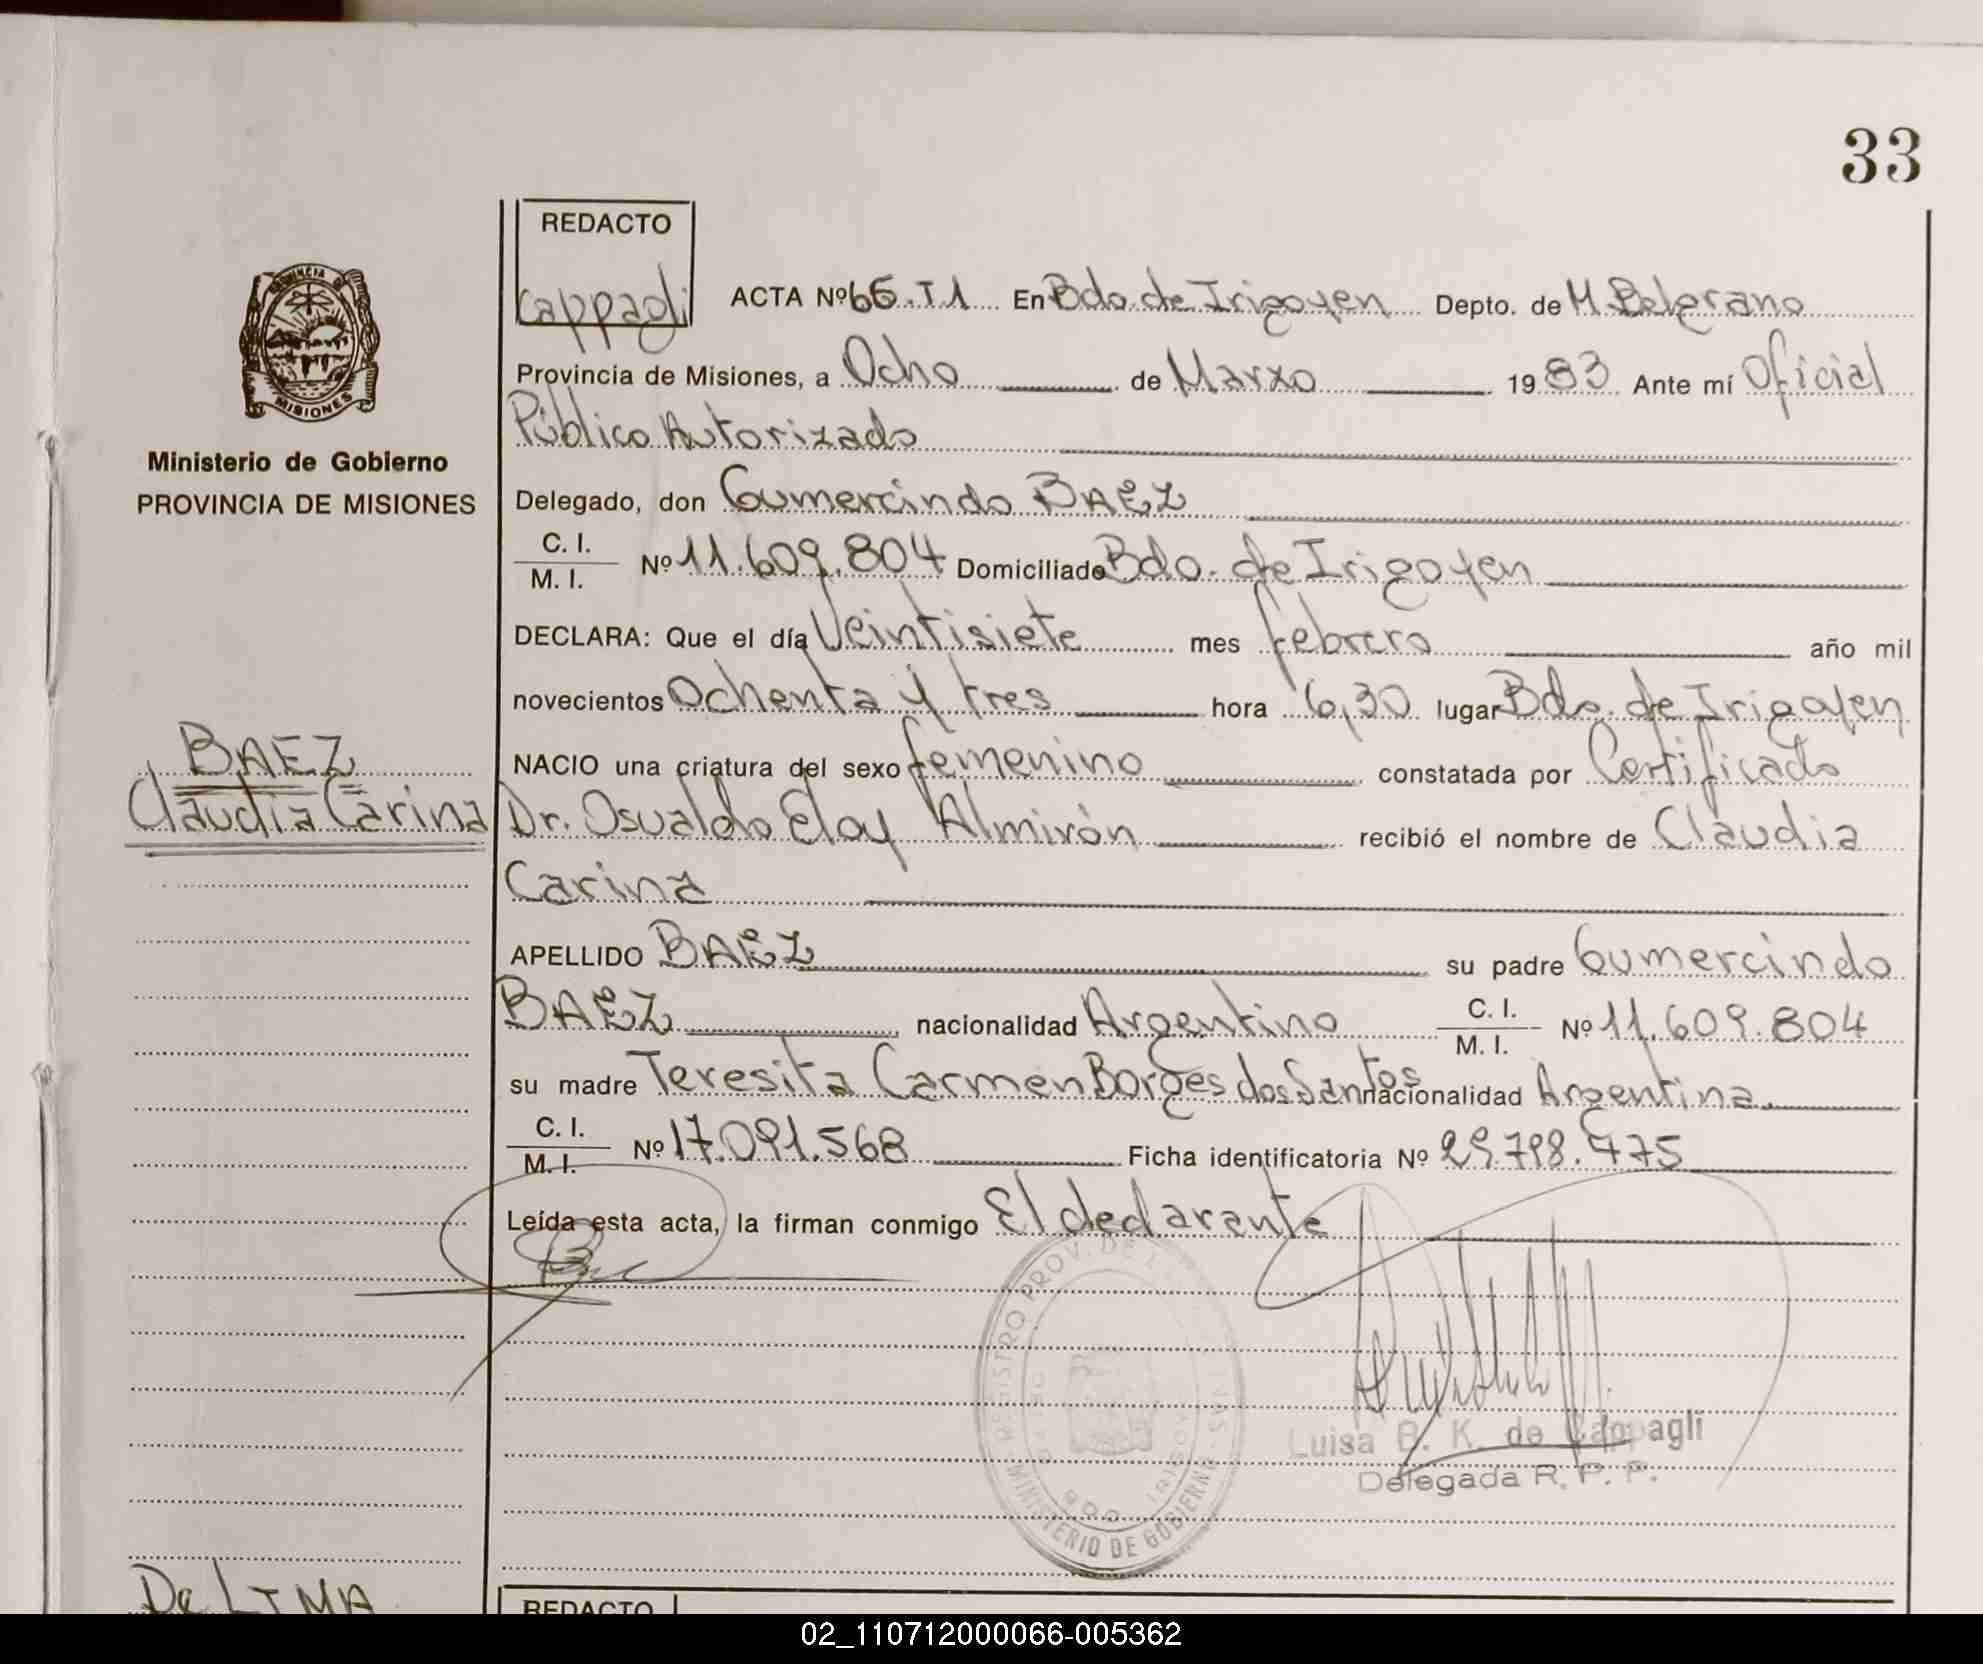 33
REDACTO
Cappagli
ACTA Nº 66.T1 En Bdo. de Irigoyen Depto. de M. Belgrano
Provincia de Misiones, a Ocho de Marzo 1983 Ante mí Oficial
Público Autorizado
Delegado, don Gumercindo BAEZ
C. I.
M. I. Nº 11.609.804 Domiciliado Bdo. de Irigoyen
DECLARA: Que el día Veintisiete mes febrero año mil
novecientos Ochenta y tres hora 6,30 lugar Bdo. de Irigoyen
NACIO una criatura del sexo femenino constatada por Certificado
Dr. Osvaldo Eloy Almirón recibió el nombre de Claudia
Carina
APELLIDO BAEZ su padre Gumercindo
BAEZ nacionalidad Argentino C. I. M. I. Nº 11.609.804
su madre Teresita Carmen Borges dos Santos nacionalidad Argentina.
C. I.
M. I. Nº 17.091.568 Ficha identificatoria Nº 29.798.475
Leída esta acta, la firman conmigo El declarante
PROVINCIA DE
MISIONES
Ministerio de Gobierno
PROVINCIA DE MISIONES
BAEZ
Claudia Carina
De LIMA
REGISTRO PROV. DE
MINISTERIO DE GOBIERNO
BDO. IRIGOYEN
Luisa B. K. de Cappagli
Delegada R. P. P.
REDACTO
02_110712000066-005362